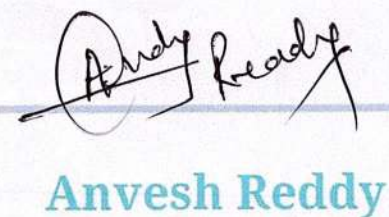 Andy Reddy
Anvesh Reddy